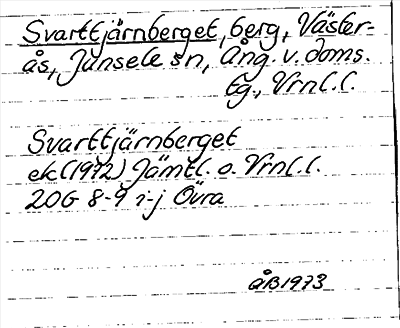 Svarttjärnberget, berg, Väster-
ås, Junsele sn, Ång. v. doms.
tg., Vrnl.l.
Svarttjärnberget
ek (1972) Jämtl. o. Vrnl.l.
20G 8-9 i-j Övra
ÅB1973